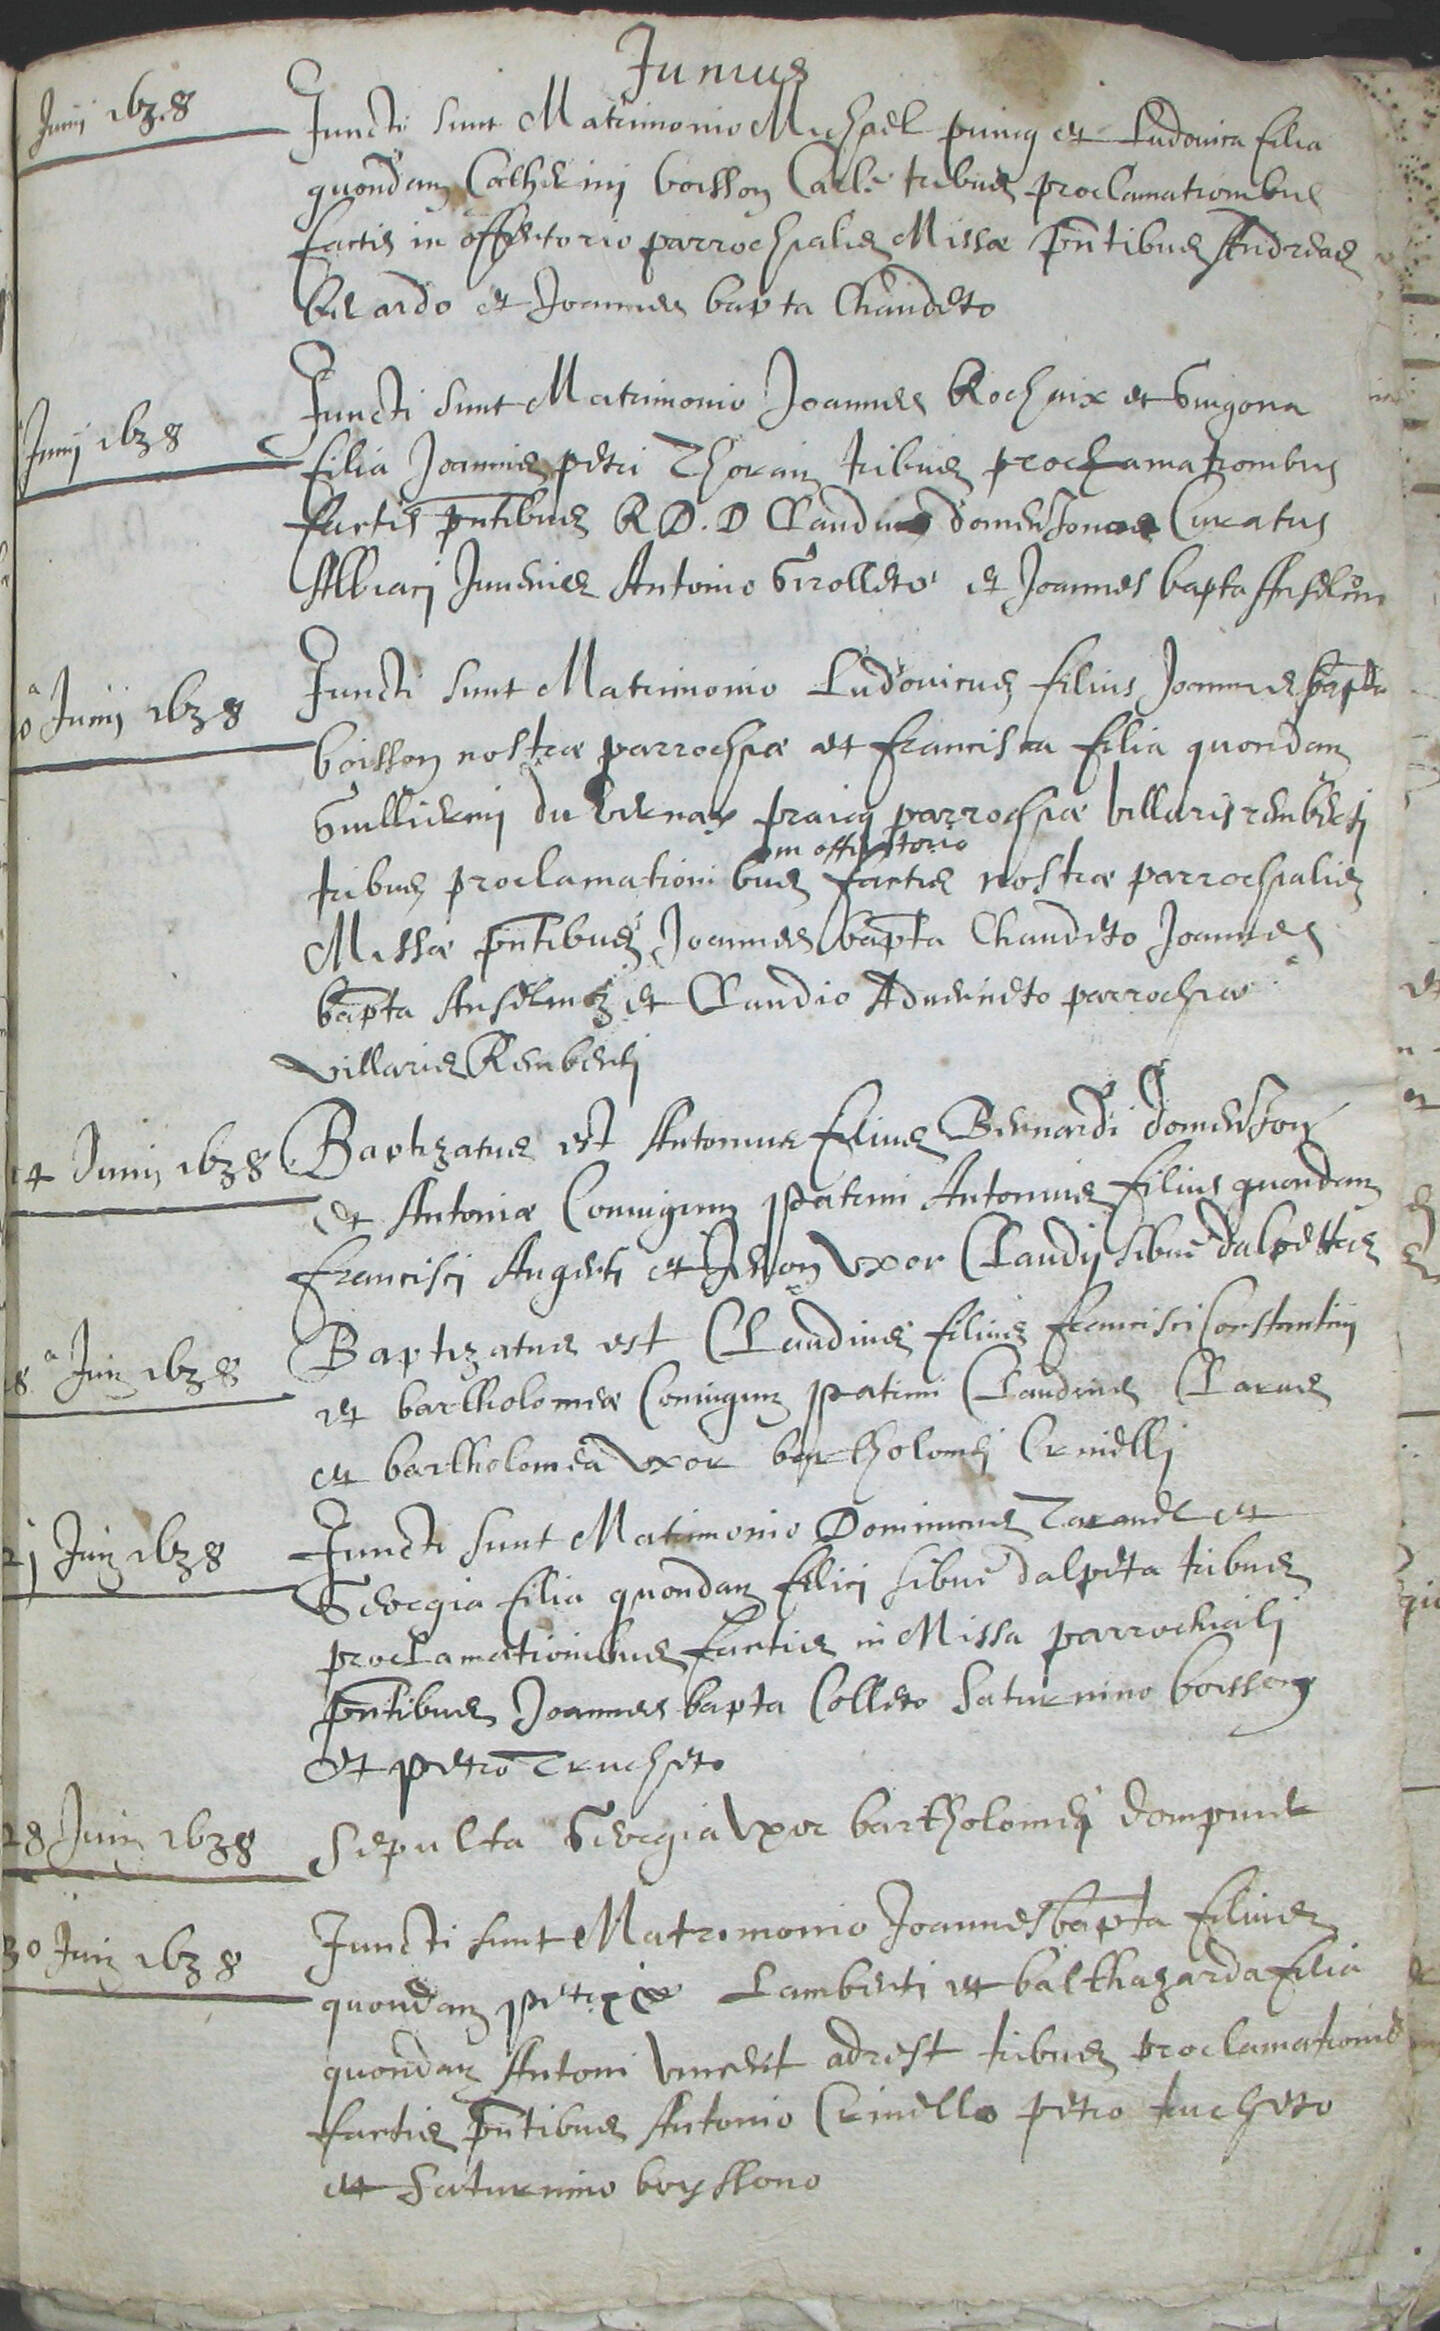 Junius
Junij 1638
Juncti sunt Matrimonio Michael et Ludovica filia
quondam Catherini boisson tribus proclamationibus
factis in offertorio parrochialis Missæ pntibus Andreas
berardo et Joannes bapta Chaudeto
Junij 1638
Juncti sunt Matrimonio Joannes Rochaix et Guigona
filia Joannis petri Thorain tribus proclamationibus
factis pntibus R D. D Claudius domenjonus Curatus
Albiaci Juvenis Antonio Grolleto et Joannes bapta Anselmo
0a Junij 1638
Juncti sunt Matrimonio Ludovicus filius Joannes bapta
boisson nostræ parrochiæ et francisca filia quondam
Guillermi du vernay parrochiæ villaris remberti
in offertorio
tribus proclamationi bus factis nostræ parrochialis
Missæ pntibus Joannes bapta Chaudeto Joannes
bapta Anselmo et Claudio parrochiæ
villaris Remberti
14 Junij 1638
Baptizatus est Antonius filius Bernardi domenjon
et Antoniæ Coniugum patrini Antonius filius quondam
francisci Augerti et uxor Claudij sibue dalpettas
8a Junij 1638
Baptizatus est Claudius filius francisci Constantini
et bartholomeæ Coniugum patrini Claudius Clarus
et bartholomea uxor bartholomei Crinelli
21 Junij 1638
Juncti sunt Matrimonio Dominicus et
Georgia filia quondam felici sibue dalpeta tribus
proclamationibus factis in Missa parrochiali
pntibus Joannes bapta Colleto Saturnino boisson
et petro Trucheto
28 Junij 1638
Sepulta Georgia uxor bartholomei dompnier
30 Junij 1638
Juncti sunt Matrimonio Joannes bapta filius
quondam petri Lamberti et balthazarda filia
quondam Antoni adrest tribus proclamationib
factis pntibus Antonio Crinello petro trucheto
et Saturnino boyssono